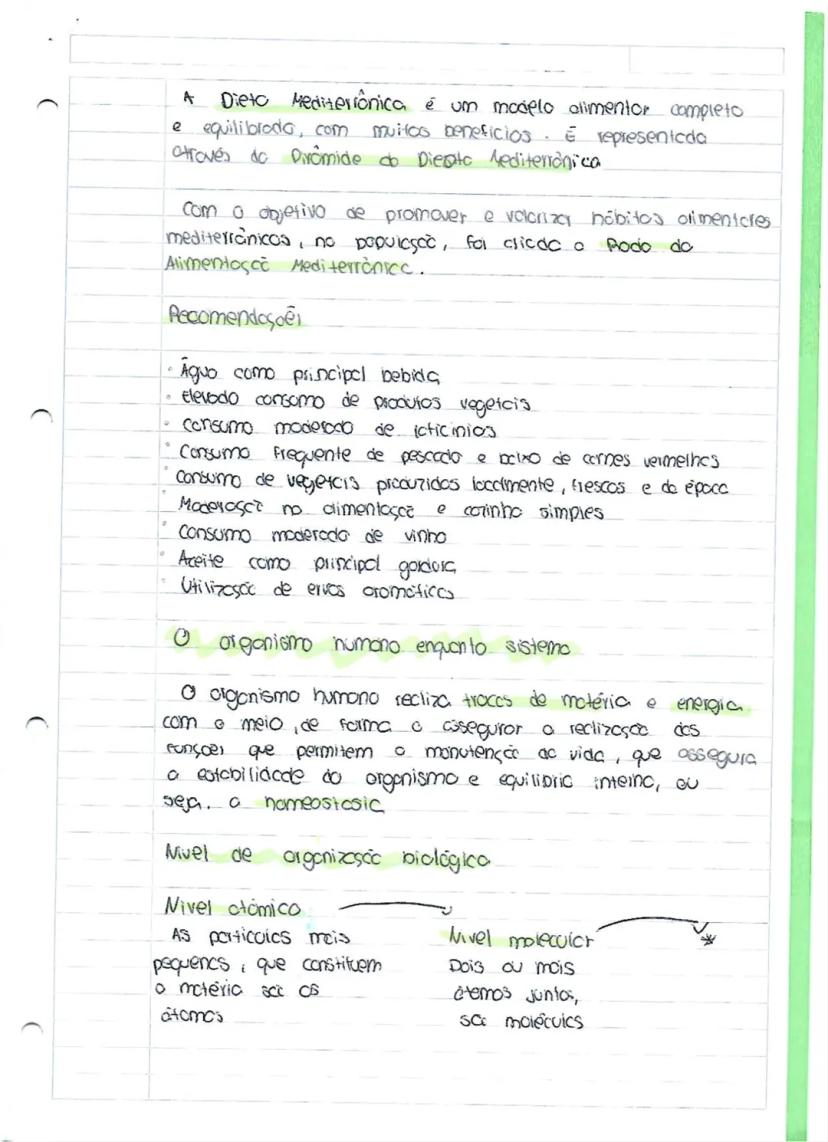 A Dieta Mediterrânica é um modelo alimentar completo
e equilibrado, com muitos benefícios. É representada
através da Pirâmide da Dieata Mediterrânica
Com o objetivo de promover e valorizar hábitos alimentares
mediterrânicos, na população, foi criada a Roda da
Alimentação Mediterrânica.
Recomendações
· Água como principal bebida
· Elevado consumo de produtos vegetais
· Consumo moderado de lacticinios
· Consumo frequente de pescado e baixo de carnes vermelhas
· Consumo de vegetais produzidos localmente, frescos e da época
· Moderação na alimentação e cozinha simples
· Consumo moderado de vinho
· Azeite como principal gordura
· Utilização de ervas aromáticas
O organismo humano enquanto sistema
O organismo humano realiza trocas de matéria e energia
com o meio, de forma a assegurar a realização das
funções que permitem a manutenção da vida, que assegura
a estabilidade do organismo e equilibrio interno, ou
seja, a homeostasia
Nível de organização biológica
Nível atómico
As particulas mais
pequenas, que constituem
a matéria são os
átomos
Nível molecular
Dois ou mais
átomos juntos,
são moléculas